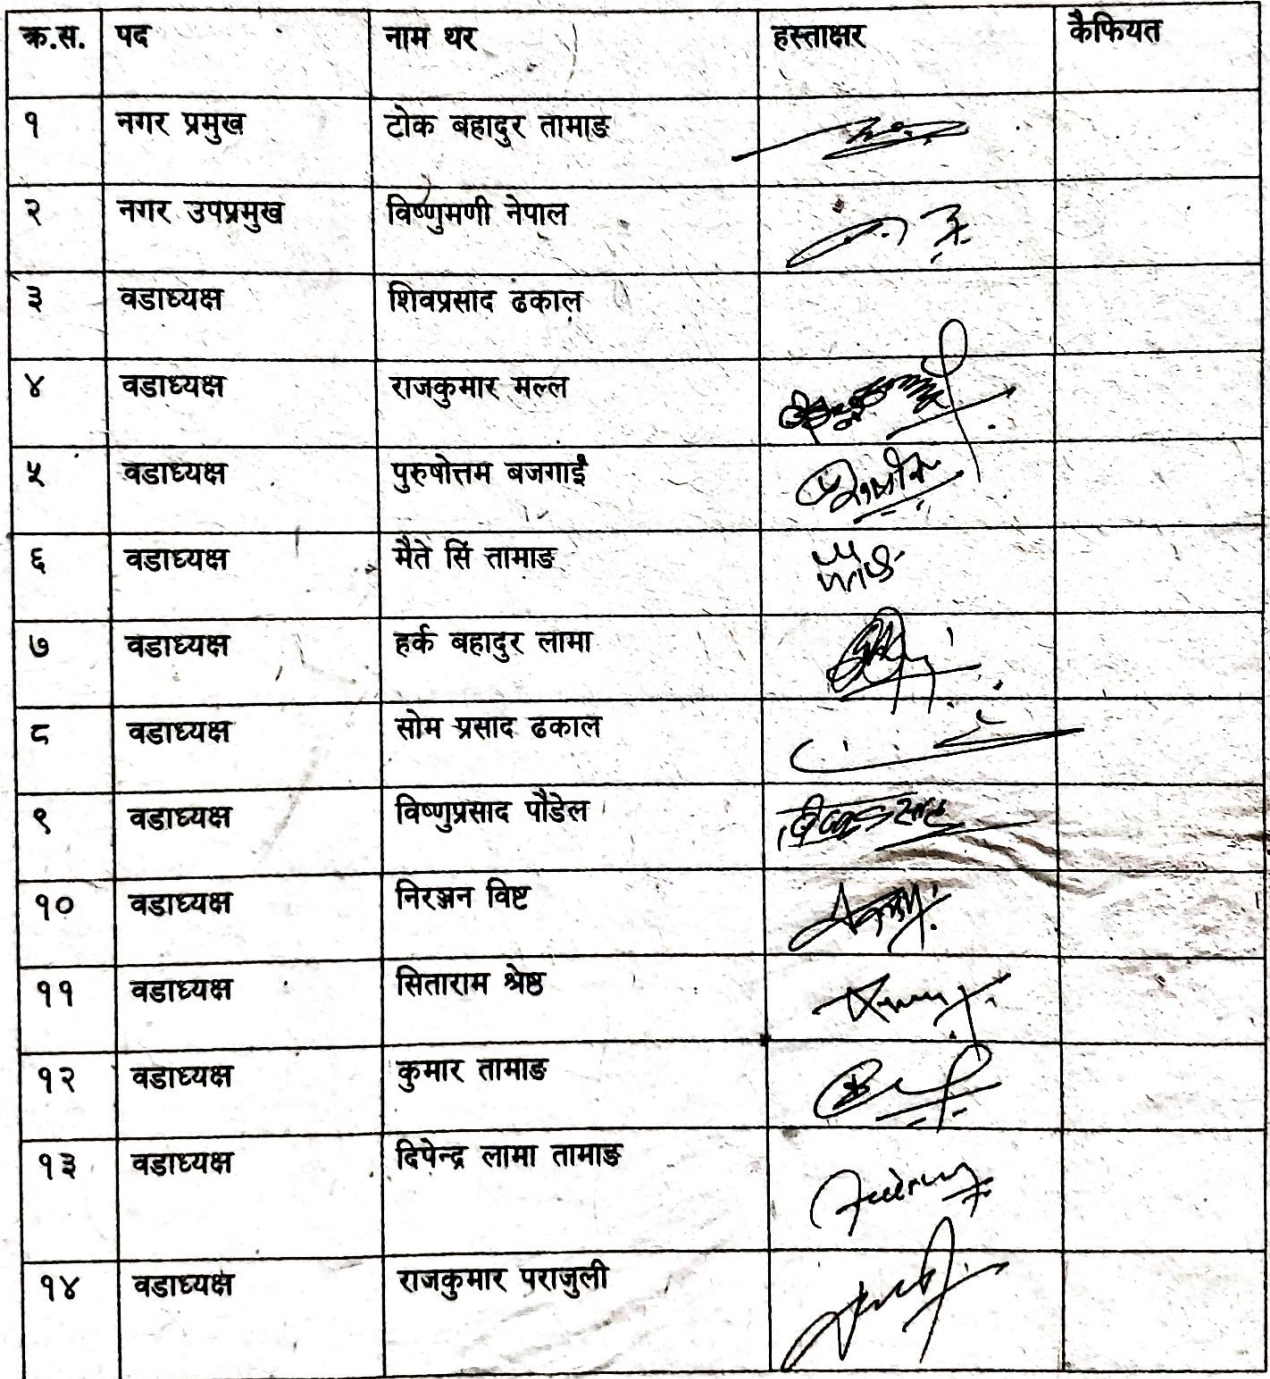 क्र.स. पद नाम थर हस्ताक्षर कैफियत
१ नगर प्रमुख टोक बहादुर तामाङ
२ नगर उपप्रमुख विष्णुमणी नेपाल
३ वडाध्यक्ष शिवप्रसाद ढकाल
४ वडाध्यक्ष राजकुमार मल्ल
५ वडाध्यक्ष पुरुषोत्तम बजगाईं
६ वडाध्यक्ष मैते सिं तामाङ
७ वडाध्यक्ष हर्क बहादुर लामा
८ वडाध्यक्ष सोम प्रसाद ढकाल
९ वडाध्यक्ष विष्णुप्रसाद पौडेल
१० वडाध्यक्ष निरञ्जन विष्ट
११ वडाध्यक्ष सिताराम श्रेष्ठ
१२ वडाध्यक्ष कुमार तामाङ
१३ वडाध्यक्ष दिपेन्द्र लामा तामाङ
१४ वडाध्यक्ष राजकुमार पराजुली